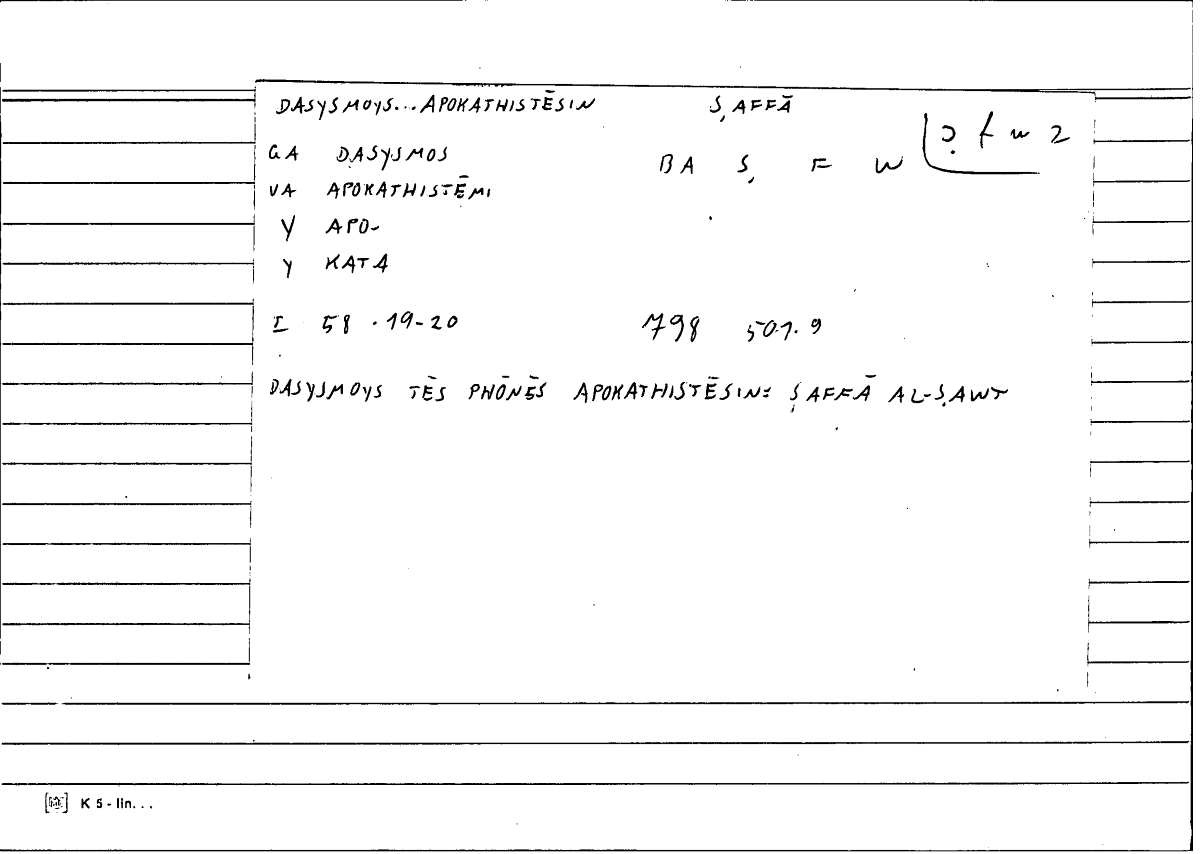 DASYSMOYS...APOKATHISTĒSIN ṢAFFĀ
GA DASYSMOS BA Ṣ F W ṣ f w 2
VA APOKATHISTĒMI
Y APO-
Y KATA
I 58.19-20 798 501.9
DASYSMOYS TĒS PHŌNĒS APOKATHISTĒSIN: ṢAFFĀ AL-ṢAWT
K 5 - lin...